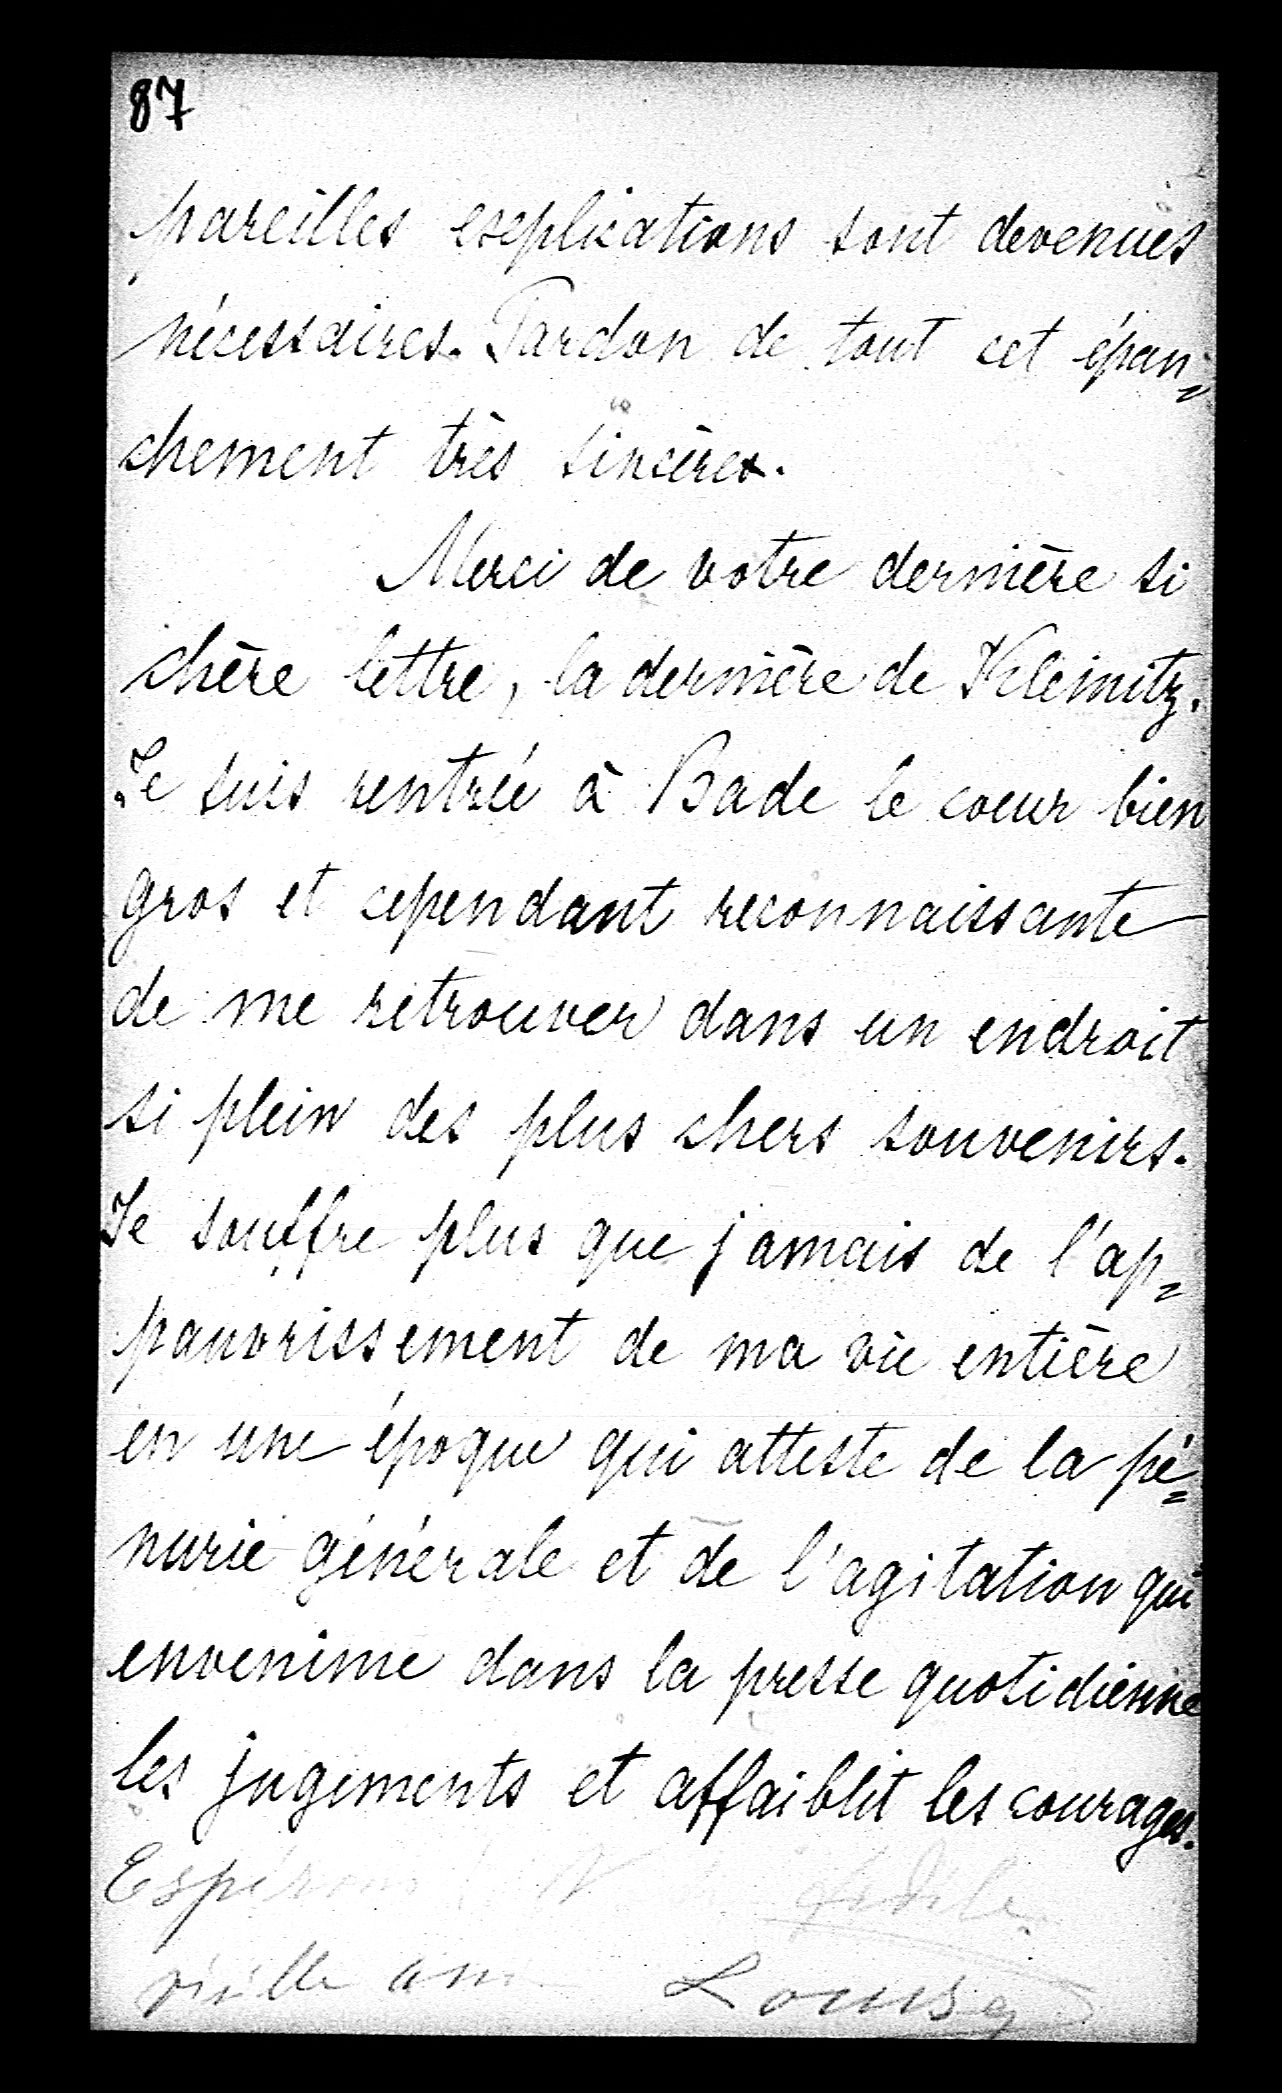 87
pareilles explications sont devenues
nécessaires. Pardon de tout cet épan=
chement très sincère.
Merci de votre dernière si
chère lettre, la dernière de Kleinitz.
Je suis rentrée à Bade le coeur bien
gros et cependant reconnaissante
de me retrouver dans un endroit
si plein des plus chers souvenirs.
Je souffre plus que jamais de l'ap=
pauvrissement de ma vie entière
en une époque qui atteste de la pé=
nurie générale et de l'agitation qui
envenime dans la presse quotidienne
les jugements et affaiblit les courages.
Espérons fidèle
vieille amie Louise